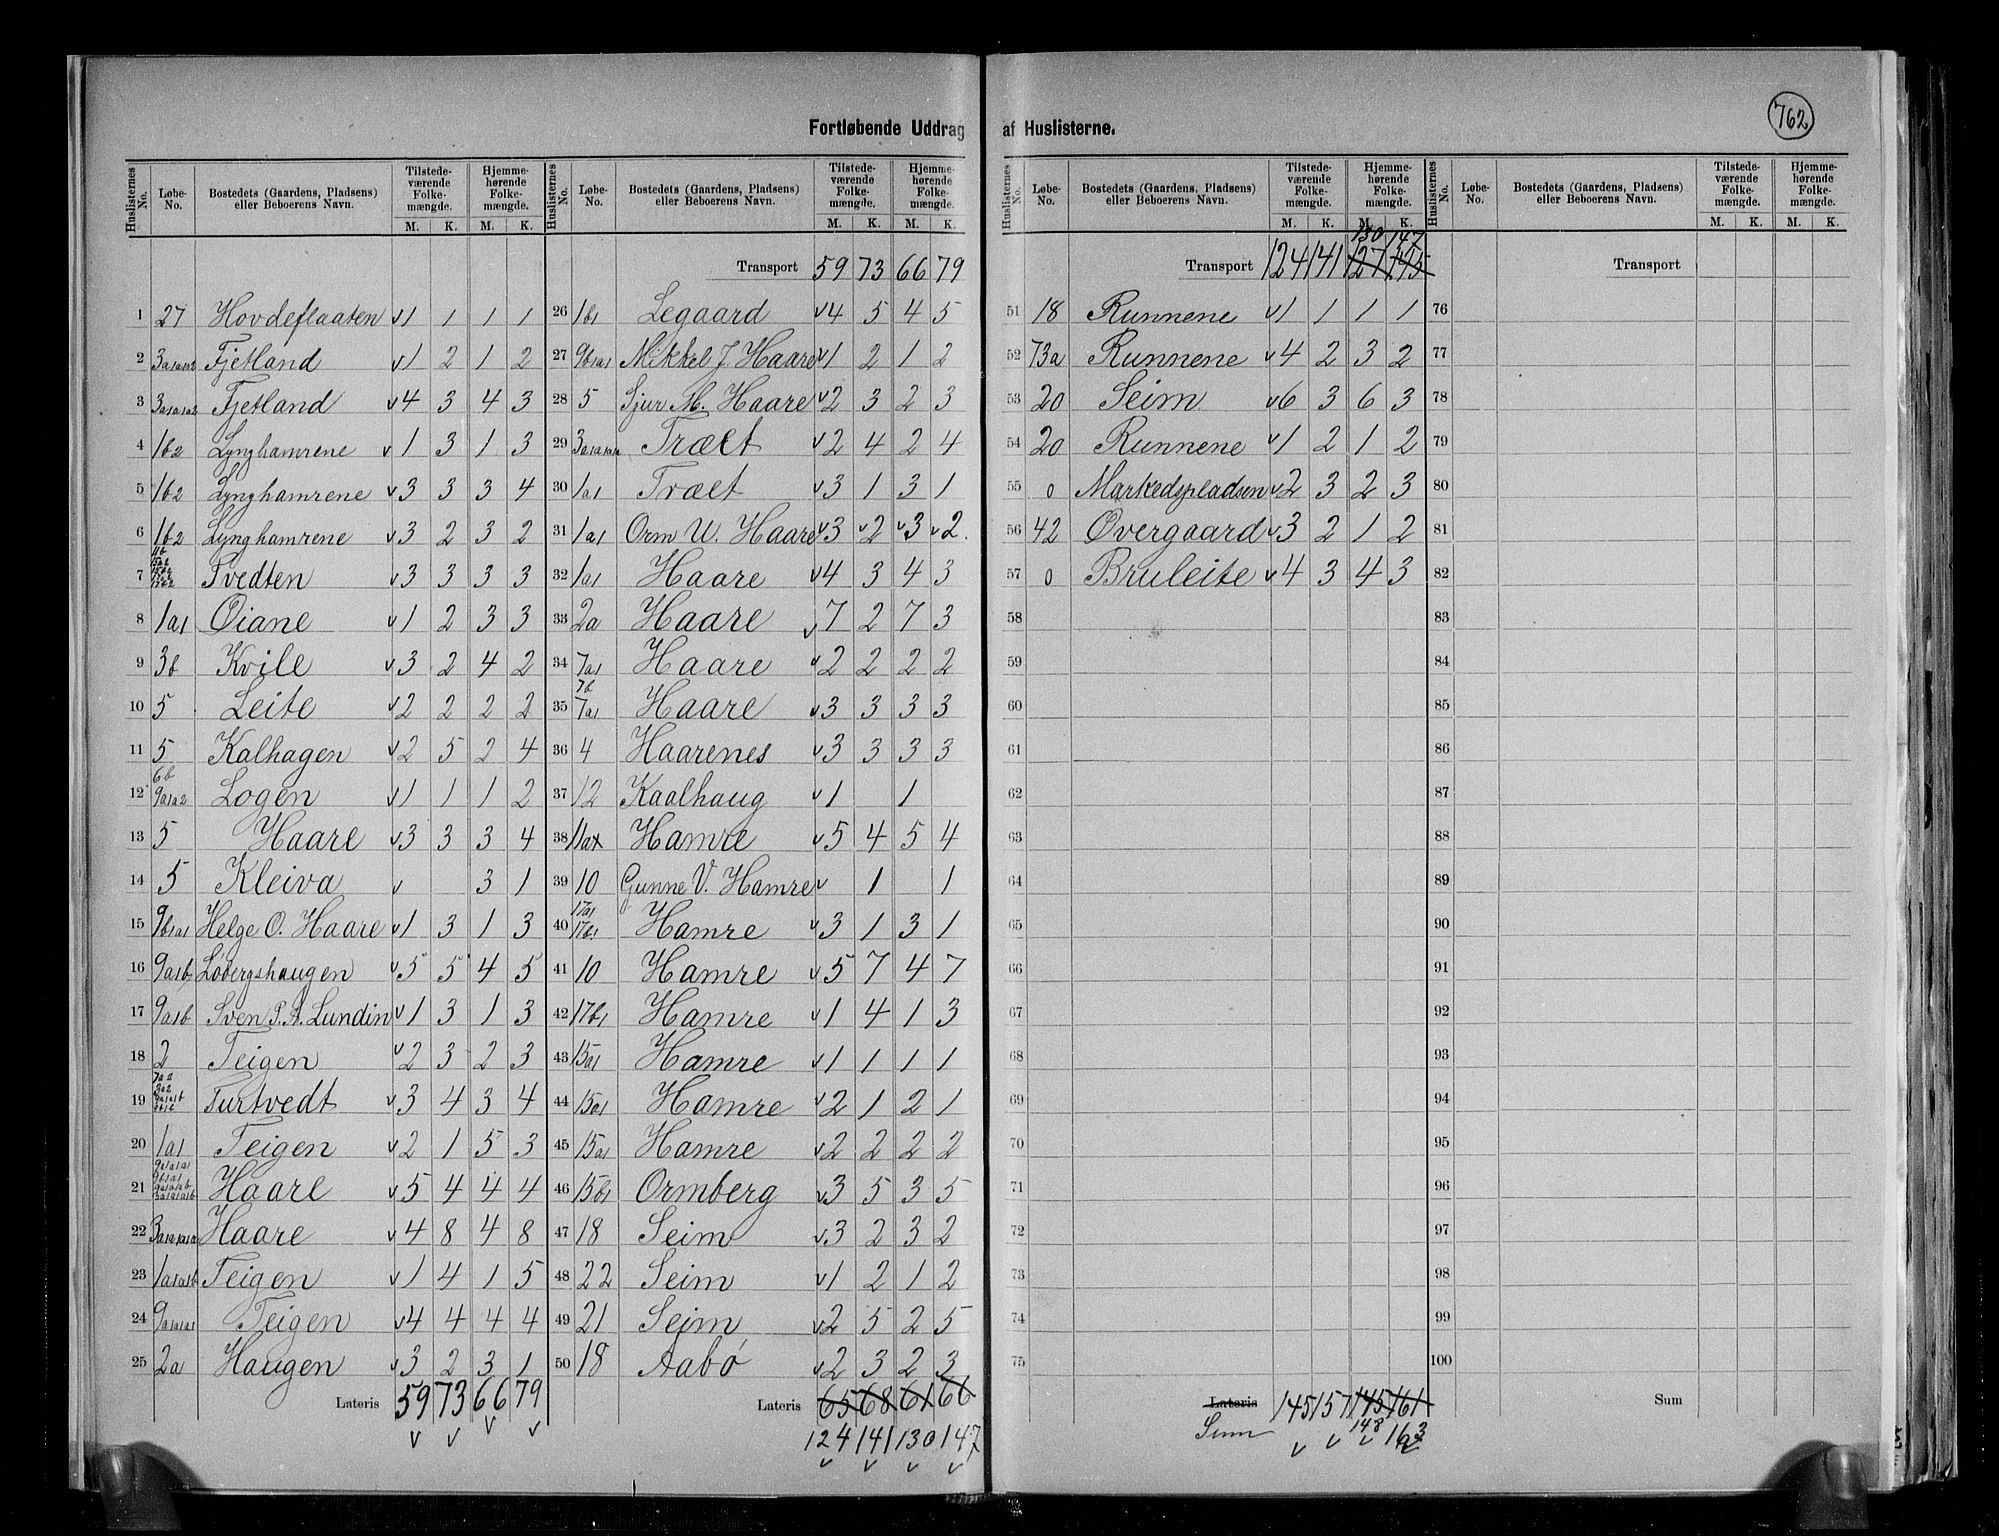 762
Fortløbende Uddrag af Huslisterne.
Huslisternes No. Løbe-No. Bostedets (Gaardens, Pladsens) eller Beboerens Navn. Tilstedeværende Folkemængde. M. K. Hjemmehørende Folkemængde. M. K.
1 27 Hovdeflaaten v 1 1 1 1
2 3a1a1a2 Fjetland v 1 2 1 2
3 3a1a1a2 Fjetland v 4 3 4 3
4 1b2 Lynghamrene v 1 3 1 3
5 1b2 Lynghamrene v 3 3 3 4
6 1b2 Lynghamrene v 3 2 3 2
7 Tvedten v 3 3 3 3
8 1a1 Øiane v 1 2 3 3
9 3b Kvile v 3 2 4 2
10 5 Leite v 2 2 2 2
11 5 Kalhagen v 2 5 2 4
12 6b 9a1a2 Logen v 1 1 1 2
13 5 Haare v 3 3 3 4
14 5 Kleiva v 3 1
15 9b1a1 Helge O. Haare v 1 3 1 3
16 9a1b Løbergshaugen v 5 5 4 5
17 9a1b Sven P. A. Lundin v 1 3 1 3
18 2 Teigen v 2 3 2 3
19 Turtvedt v 3 4 3 4
20 1a1 Teigen v 2 1 5 3
21 Haare v 5 4 4 4
22 3a1a1a1a Haare v 4 8 4 8
23 1a1a1b Teigen v 1 4 1 5
24 9a1a1a1 Teigen v 4 4 4 4
25 2a Haugen v 3 2 3 1
Lateris 59 73 66 79
v v v v
Huslisternes No. Løbe-No. Bostedets (Gaardens, Pladsens) eller Beboerens Navn. Tilstedeværende Folkemængde. M. K. Hjemmehørende Folkemængde. M. K.
Transport 59 73 66 79
26 1b1 Legaard v 4 5 4 5
27 9b1a1 Mikkel J Haare v 1 2 1 2
28 5 Sjur M. Haare v 2 3 2 3
29 3a1a1a1a Træet v 2 4 2 4
30 1a1 Træet v 3 1 3 1
31 1a1 Orm U. Haare v 3 v 2 v 3 v 2.
32 1a1 Haare v 4 3 4 3
33 2a Haare v 7 2 7 3
34 7a1 Haare v 2 2 2 2
35 7b 7a1 Haare v 3 3 3 3
36 4 Haarenes v 3 3 3 3
37 12 Kaalhaug v 1 1
38 Hamre v 5 4 5 4
39 10 Gunne V. Hamre v 1 1
40 17a1 17b1 Hamre v 3 1 3 1
41 10 Hamre v 5 7 4 7
42 17b1 Hamre v 1 4 1 3
43 15a1 Hamre v 1 1 1 1
44 15a1 Hamre v 2 1 2 1
45 15a1 Hamre v 2 2 2 2
46 15b1 Ormberg v 3 5 3 5
47 18 Seim v 3 2 3 2
48 22 Seim v 1 2 1 2
49 21 Seim v 2 5 2 5
50 18 Aabø v 2 3 2 3
Lateris 65 68 61 66
124 141 130 147
v v v v
Huslisternes No. Løbe-No. Bostedets (Gaardens, Pladsens) eller Beboerens Navn. Tilstedeværende Folkemængde. M. K. Hjemmehørende Folkemængde. M. K.
130 147
Transport 124 141 127 145
51 18 Runnene v 1 1 1 1
52 73a Runnene v 4 2 3 2
53 20 Seim v 6 3 6 3
54 20 Runnene v 1 2 1 2
55 0 Markedspladsen v 2 3 2 3
56 42 Øvergaard v 3 2 1 2
57 0 Bruleite v 4 3 4 3
58
59
60
61
62
63
64
65
66
67
68
69
70
71
72
73
74
75
Lateris 145 157 145 161
Sum 148 163
v v v v
Huslisternes No. Løbe-No. Bostedets (Gaardens, Pladsens) eller Beboerens Navn. Tilstedeværende Folkemængde. M. K. Hjemmehørende Folkemængde. M. K.
Transport
76
77
78
79
80
81
82
83
84
85
86
87
88
89
90
91
92
93
94
95
96
97
98
99
100
Sum